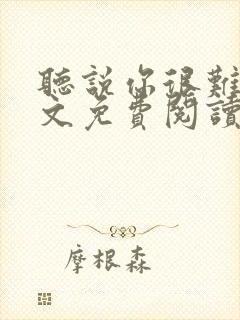 聽說你很難
文免費閱讀
摩根森